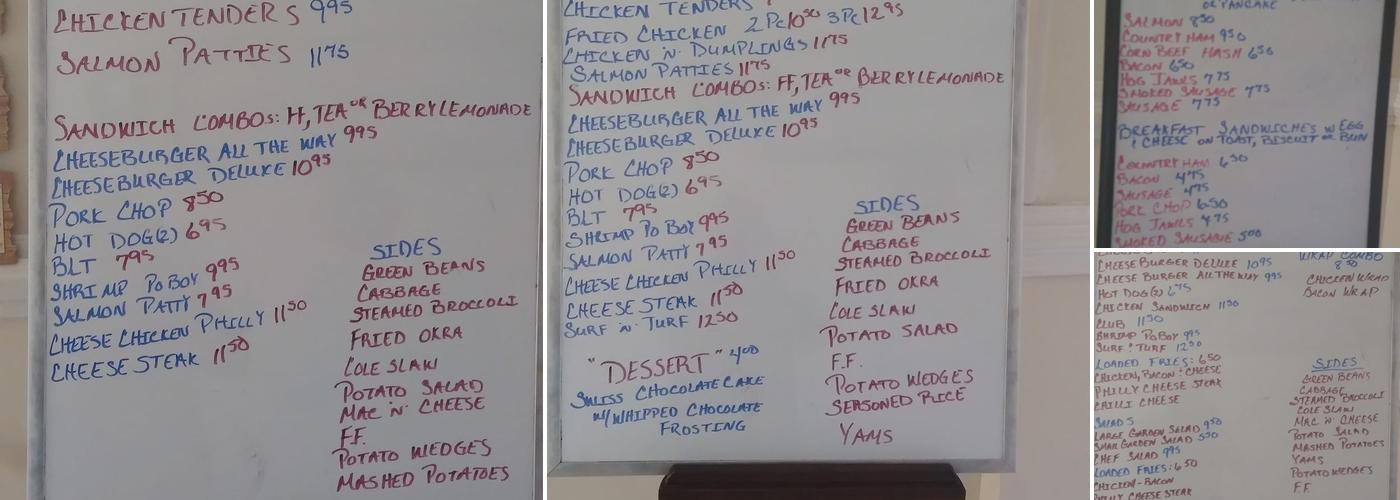 CHICKEN TENDERS 995
SALMON PATTIES 1175
SANDWICH COMBOS: FF, TEA OR BERRYLEMONADE
CHEESEBURGER ALL THE WAY 995
CHEESEBURGER DELUXE 1095
PORK CHOP 850
HOT DOG(2) 695
BLT 795
SHRIMP PO BOY 995
SALMON PATTY 795
CHEESE CHICKEN PHILLY 1150
CHEESE STEAK 1150
SIDES
GREEN BEANS
CABBAGE
STEAMED BROCCOLI
FRIED OKRA
COLE SLAW
POTATO SALAD
MAC 'N' CHEESE
F.F.
POTATO WEDGES
MASHED POTATOES
CHICKEN TENDERS
FRIED CHICKEN 2 Pc 1050 3 Pc 1295
CHICKEN 'N' DUMPLINGS 1175
SALMON PATTIES 1175
SANDWICH COMBOS: FF, TEA OR BERRYLEMONADE
CHEESEBURGER ALL THE WAY 995
CHEESEBURGER DELUXE 1095
PORK CHOP 850
HOT DOG(2) 695
BLT 795
SHRIMP PO BOY 995
SALMON PATTY 795
CHEESE CHICKEN PHILLY 1150
CHEESE STEAK 1150
SURF 'N' TURF 1250
"DESSERT" 400
SWISS CHOCOLATE CAKE
W/WHIPPED CHOCOLATE
FROSTING
SIDES
GREEN BEANS
CABBAGE
STEAMED BROCCOLI
FRIED OKRA
COLE SLAW
POTATO SALAD
F.F.
POTATO WEDGES
SEASONED RICE
YAMS
OR PANCAKE
SALMON 850
COUNTRY HAM 950
CORN BEEF HASH 650
BACON 650
HOG JAWLS 775
SMOKED SAUSAGE 775
SAUSAGE 775
BREAKFAST SANDWICHES W EGG
& CHEESE ON TOAST, BISCUIT OR BUN
COUNTRY HAM 650
BACON 475
SAUSAGE 475
PORK CHOP 650
HOG JAWLS 475
SMOKED SAUSAGE 500
CHEESE BURGER DELUXE 1095
CHEESE BURGER ALL THE WAY 995
HOT DOG(2) 695
CHICKEN SANDWICH 1150
CLUB 1150
SHRIMP PO BOY 995
SURF & TURF 1250
LOADED FRIES: 650
CHICKEN, BACON & CHEESE
PHILLY CHEESE STEAK
CHILLI CHEESE
SALADS
LARGE GARDEN SALAD 950
SMALL GARDEN SALAD 550
CHEF SALAD 995
LOADED FRIES: 650
CHICKEN-BACON
PHILLY CHEESE STEAK
WRAP COMBO
850
CHICKEN WRAP
BACON WRAP
SIDES
GREEN BEANS
CABBAGE
STEAMED BROCCOLI
COLE SLAW
MAC 'N' CHEESE
POTATO SALAD
MASHED POTATOES
YAMS
POTATO WEDGES
F.F.